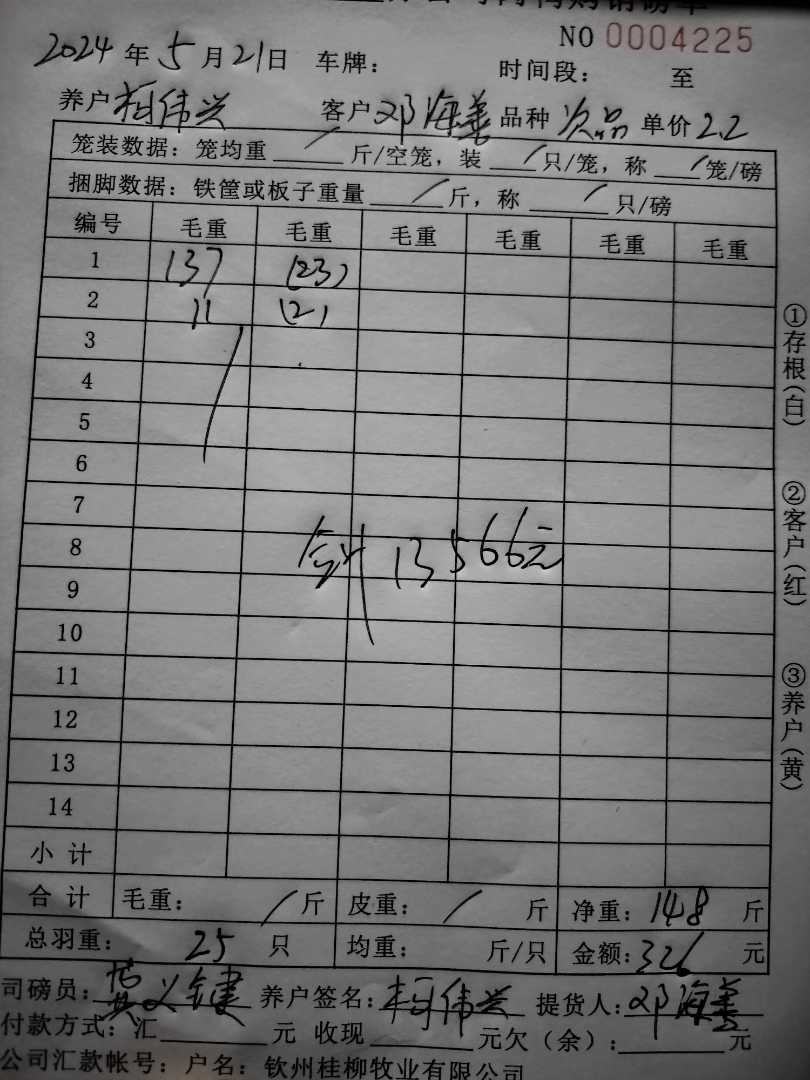 NO 0004225
2024年5月21日 车牌: 时间段: 至
养户 柯伟兴 客户 邓海善 品种 次品 单价 2.2
笼装数据: 笼均重 / 斤/空笼, 装 / 只/笼, 称 / 笼/磅
捆脚数据: 铁筐或板子重量 / 斤, 称 / 只/磅
编号 毛重 毛重 毛重 毛重 毛重 毛重
1 137 (23)
2 11 (2)
3
4
5
6
7
8
13566元
9
10
11
12
13
14
小计
合计 毛重: / 斤 皮重: / 斤 净重: 148 斤
总羽重: 25 只 均重: 斤/只 金额: 326 元
司磅员: 黄义健 养户签名: 柯伟兴 提货人: 邓海善
付款方式: 汇 元 收现 元欠(余): 元
公司汇款帐号: 户名: 钦州桂柳牧业有限公司
①存根(白)
②客户(红)
③养户(黄)